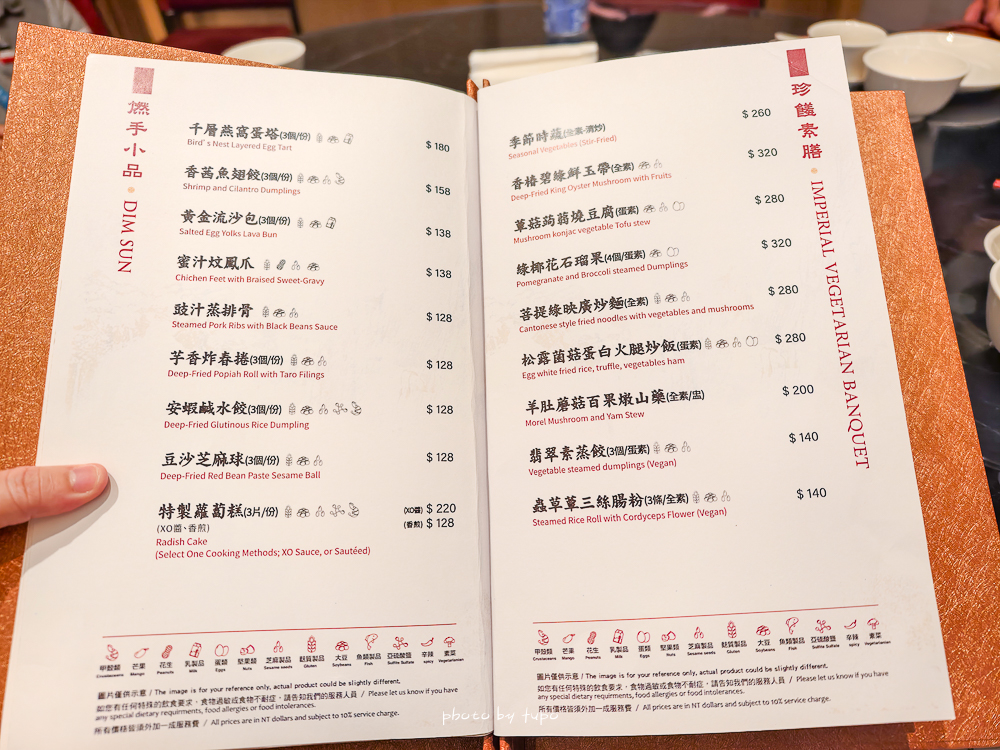 燃手小品 • DIM SUN
千層燕窩蛋塔(3個/份) $ 180
Bird's Nest Layered Egg Tart
香茜魚翅餃(3個/份) $ 158
Shrimp and Cilantro Dumplings
黃金流沙包(3個/份) $ 138
Salted Egg Yolks Lava Bun
蜜汁炆鳳爪 $ 138
Chichen Feet with Braised Sweet-Gravy
豉汁蒸排骨 $ 128
Steamed Pork Ribs with Black Beans Sauce
芋香炸春捲(3個/份) $ 128
Deep-Fried Popiah Roll with Taro Filings
安蝦鹹水餃(3個/份) $ 128
Deep-Fried Glutinous Rice Dumpling
豆沙芝麻球(3個/份) $ 128
Deep-Fried Red Bean Paste Sesame Ball
特製蘿蔔糕(3片/份) (XO醬) $ 220
(XO醬、香煎) (香煎) $ 128
Radish Cake
(Select One Cooking Methods; XO Sauce, or Sautéed)
甲殼類 芒果 花生 乳製品 蛋類 堅果類 芝麻製品 麩質製品 大豆 魚類製品 亞硫酸鹽 辛辣 素菜
Crustaceans Mango Peanuts Milk Eggs Nuts Sesame seeds Gluten Soybeans Fish Sulfite Sulfate spicy Vegetarianism
圖片僅供示意 / The image is for your reference only, actual product could be slightly different.
如您有任何特殊的飲食要求、食物過敏或食物不耐症，請告知我們的服務人員 / Please let us know if you have
any special dietary requirments, food allergies or food intolerances.
所有價格皆須外加一成服務費 / All prices are in NT dollars and subject to 10% service charge.
珍饈素膳 • IMPERIAL VEGETARIAN BANQUET
季節時蔬(全素·清炒) $ 260
Seasonal Vegetables (Stir-Fried)
香椿碧綠鮮玉帶(全素) $ 320
Deep-Fried King Oyster Mushroom with Fruits
蕈菇蒟蒻燒豆腐(蛋素) $ 280
Mushroom konjac vegetable Tofu stew
綠椰花石瑠果(4個/蛋素) $ 320
Pomegranate and Broccoli steamed Dumplings
菩提緣映廣炒麵(全素) $ 280
Cantonese style fried noodles with vegetables and mushrooms
松露菌菇蛋白火腿炒飯(蛋素) $ 280
Egg white fried rice, truffle, vegetables ham
羊肚蘑菇百果燉山藥(全素/盅) $ 200
Morel Mushroom and Yam Stew
翡翠素蒸餃(3個/蛋素) $ 140
Vegetable steamed dumplings (Vegan)
蟲草蕈三絲腸粉(3條/全素) $ 140
Steamed Rice Roll with Cordyceps Flower (Vegan)
甲殼類 芒果 花生 乳製品 蛋類 堅果類 芝麻製品 麩質製品 大豆 魚類製品 亞硫酸鹽 辛辣 素菜
Crustaceans Mango Peanuts Milk Eggs Nuts Sesame seeds Gluten Soybeans Fish Sulfite Sulfate spicy Vegetarianism
圖片僅供示意 / The image is for your reference only, actual product could be slightly different.
如您有任何特殊的飲食要求、食物過敏或食物不耐症，請告知我們的服務人員 / Please let us know if you have
any special dietary requirments, food allergies or food intolerances.
所有價格皆須外加一成服務費 / All prices are in NT dollars and subject to 10% service charge.
photo by tupo